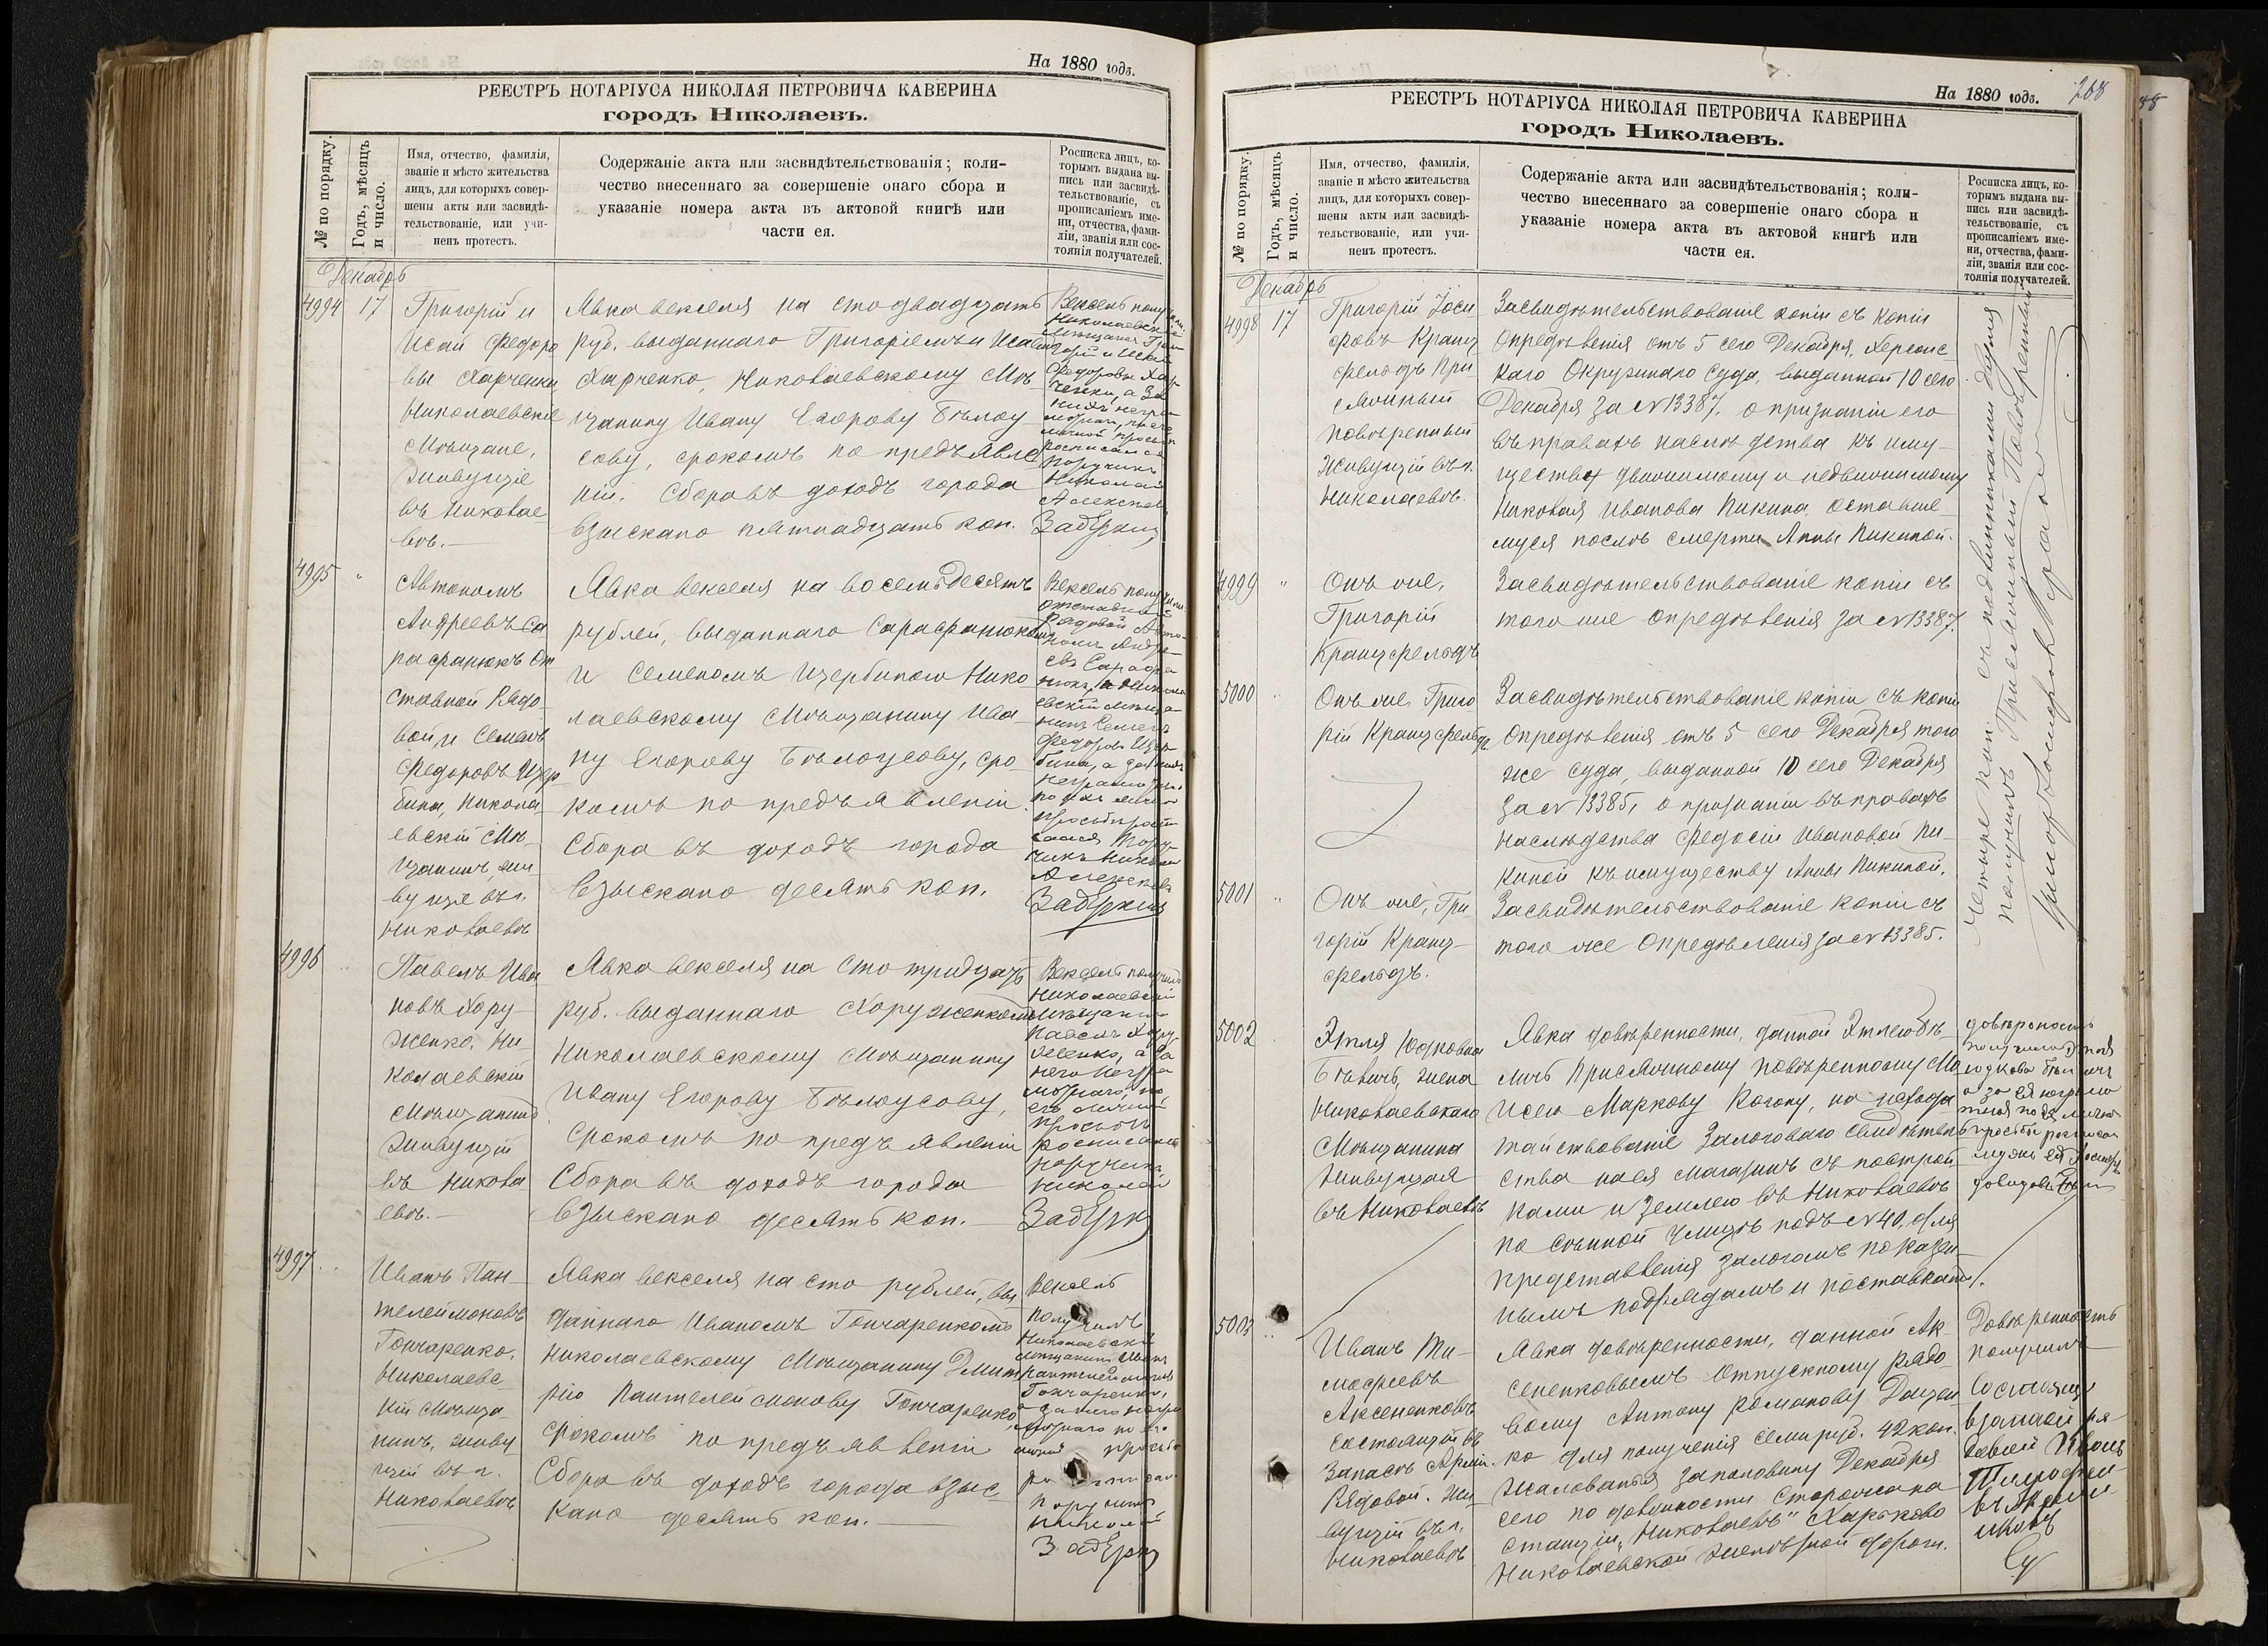 На 1880 годъ.
РЕЕСТРЪ НОТАРІУСА НИКОЛАЯ ПЕТРОВИЧА КАВЕРИНА
городъ Николаевъ.
№ по порядку.
Годъ, мѣсяцъ
и число.
Имя, отчество, фамилія,
званіе и мѣсто жительства
лицъ, для которыхъ совер-
шены акты или засвидѣ-
тельствованіе, или учи-
ненъ протестъ.
Содержаніе акта или засвидѣтельствованія; коли-
чество внесеннаго за совершеніе онаго сбора и
указаніе номера акта въ актовой книгѣ или
части ея.
Росписка лицъ, ко-
торымъ выдана вы-
пись или засвидѣ-
тельствованіе, съ
прописаніемъ име-
ни, отчества, фами-
ліи, званія или сос-
тоянія получателей.
Декабрь
4994 17
Григорій и
Исай Федоро
вы Харченки
Николаевскіе
Мѣщане,
живущіе
въ Николае
вѣ.—
Явка векселя на сто двадцать
руб. выданнаго Григоріемъ и Исаемъ
Харченко, Николаевскому Мѣ
щанину Ивану Егорову Бѣлоу
сову, срокомъ по предъявле
ніи. Сборовъ доходъ города
взыскано пятнадцать коп.
Вексель получили
Николаевскіе
Мѣщане Гри
горій и Исай
Федоровы Хар
ченки, а за
нихъ негра
мотныхъ, по ихъ
личной просьбѣ
росписался
Поручикъ
Николай
Алексѣевъ
4995 "
Автономъ
Андреевъ Са
рафанюкъ От
ставной Рядо
вой и Семенъ
Федоровъ Щер
бина, Никола
евскій Мѣ
щанинъ, жи
вущіе въ г.
Николаевѣ
Явка векселя на восемьдесятъ
рублей, выданнаго Сарафанюкомъ
и Семеномъ Щербиною Нико
лаевскому Мѣщанину Ива
ну Егорову Бѣлоусову, сро
комъ по предъявленіи.
Сбора въ доходъ города
взыскано десять коп.
Вексель получили
отставной
Рядовой Авто
номъ Андре
евъ Сарафа
нюкъ, и Никола
евскій Мѣща
нинъ Семенъ
Федоровъ Щер
бина, а за нихъ
неграмотныхъ
по ихъ личной
просьбѣ роспи
сался Пору
чикъ Николай
Алексѣевъ
4996 "
Павелъ Ива
новъ Хору
женко, Ни
колаевскій
Мѣщанинъ
живущій
въ Никола
евѣ.—
Явка векселя на сто тридцать
руб. выданнаго Хоруженкомъ
Николаевскому Мѣщанину
Ивану Егорову Бѣлоусову,
срокомъ по предъявленіи
Сбора въ доходъ города
взыскано десять коп.—
Вексель получилъ
Николаевскій
Мѣщанинъ
Павелъ Хору
женко, а за
него негра
мотнаго, по
его личной
просьбѣ
росписался
поручикъ
Николай
4997 "
Иванъ Пан
телеймоновъ
Гончаренко,
Николаевс
кій Мѣща
нинъ, живу
щій въ г.
Николаевѣ
Явка векселя на сто рублей, вы
даннаго Иваномъ Гончаренкомъ
Николаевскому Мѣщанину Дмит
рію Пантелеймонову Гончаренко,
срокомъ по предъявленіи
Сбора въ доходъ города взыс
кано десять коп.—
Вексель
получилъ
Николаевскій
мѣщанинъ Иванъ
Пантелеймоновъ
Гончаренко,
а за него негра
мотнаго по его
личной просьбѣ
росписался
поручикъ
Николай
На 1880 годъ.
268
РЕЕСТРЪ НОТАРІУСА НИКОЛАЯ ПЕТРОВИЧА КАВЕРИНА
городъ Николаевъ.
№ по порядку.
Годъ, мѣсяцъ
и число.
Имя, отчество, фамилія,
званіе и мѣсто жительства
лицъ, для которыхъ совер-
шены акты или засвидѣ-
тельствованіе, или учи-
ненъ протестъ.
Содержаніе акта или засвидѣтельствованія; коли-
чество внесеннаго за совершеніе онаго сбора и
указаніе номера акта въ актовой книгѣ или
части ея.
Росписка лицъ, ко-
торымъ выдана вы-
пись или засвидѣ-
тельствованіе, съ
прописаніемъ име-
ни, отчества, фами-
ліи, званія или сос-
тоянія получателей.
Декабрь
4998 17
Григорій Іоси
фовъ Кранц
фельдъ При
сяжный
повѣренный
живущій въ г.
Николаевѣ.
Засвидѣтельствованіе копіи съ копіи
опредѣленія отъ 5 сего Декабря, Херсонс
каго Окружнаго Суда, выданной 10 сего
Декабря за № 13387, о признаніи его
въ правахъ наслѣдства къ иму
ществу движимому и недвижимому
Николая Иванова Пикина, оставше
муся послѣ смерти Анны Пикиной.
4999 "
Онъ же,
Григорій
Кранцфельдъ
Засвидѣтельствованіе копіи съ
того же опредѣленія за № 13387.
5000 "
Онъ же, Григо
рій Кранцфельдъ
Засвидѣтельствованіе копіи съ копіи
опредѣленія отъ 5 сего Декабря того
же суда, выданной 10 сего Декабря
за № 13385, о признаніи въ правахъ
наслѣдства Федосіи Ивановой Пи
киной къ имуществу Анны Пикиной.
5001 "
Онъ же, Гри
горій Кранц
фельдъ.
Засвидѣтельствованіе копіи съ
того же опредѣленія за № 13385.
Четыре копіи съ подлинниками
получилъ Присяжный Повѣренный
5002
Этля Юдковна
Бѣ
жена
Николаевскаго
Мѣщанина
живущая
въ Николаевѣ
Явка довѣренности, данной Этлею
Присяжному Повѣренному Мо
исею Маркову Когону, на исхода
тайствованіе залоговаго свидѣтель
ства на ея магазинъ съ построй
ками и землею въ Николаевѣ
по Сѣнной улицѣ подъ № 40, для
представленія залогомъ по казен
нымъ подрядамъ и поставкамъ.
довѣренность
получила Этля
5003
Иванъ Ти
мофеевъ
Аксененковъ
состоящій въ
запасѣ Арміи
Рядовой, жи
вущій въ г.
Николаевѣ
Явка довѣренности, данной Ак
сененковымъ Отпускному рядо
вому Антону Романову Дацен
ко для получения семи руб. 42 коп.
жалованья за половину Декабря
сего по должности Сторожа на
станціи „Николаевъ" Харьково
Николаевской желѣзной дороги.
Довѣренность
получилъ
состоящій
въ запасѣ ря
довой Иванъ
Тимофее
въ Аксене
нковъ